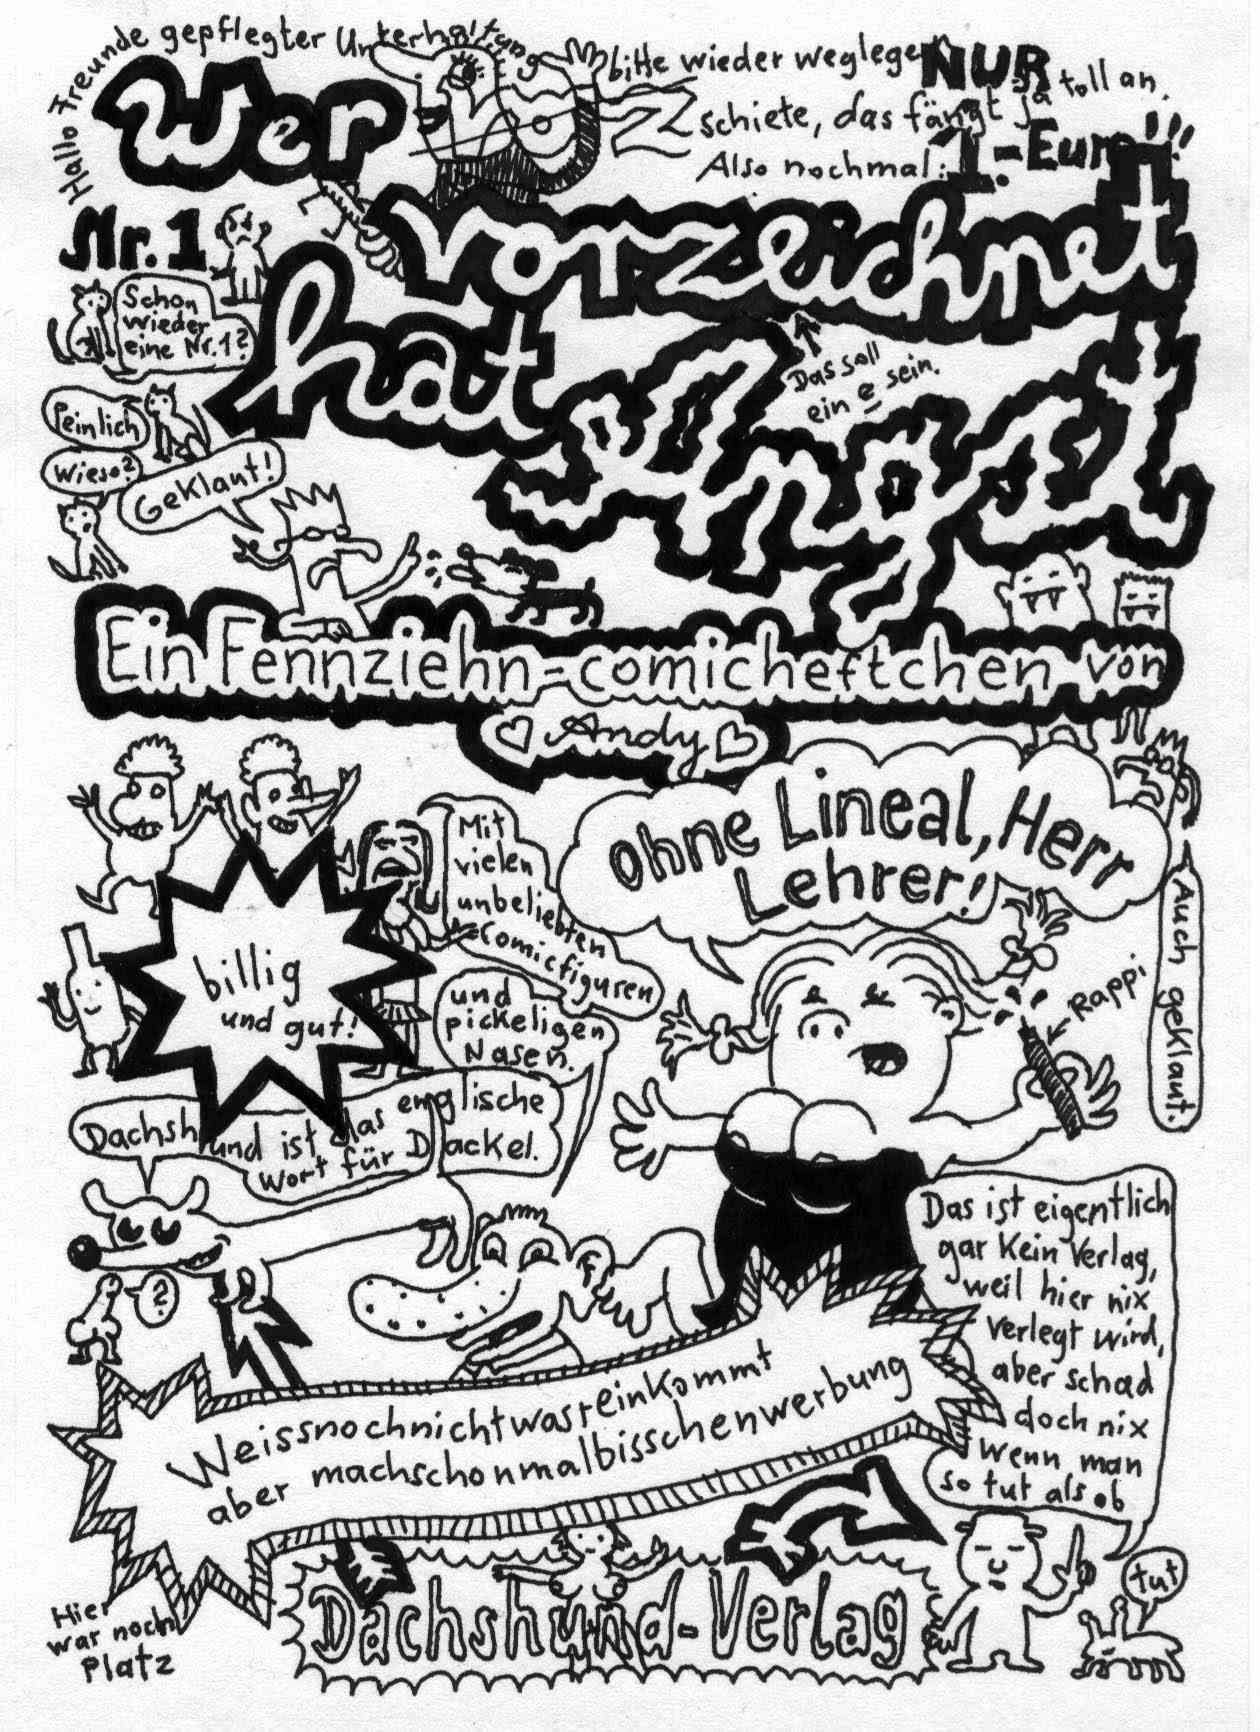 Hallo Freunde gepflegter Unterhaltung
bitte wieder weglegen
NUR
schiete, das fängt ja toll an.
Also nochmal:
1.-Euro!!!
Wer
vorzeichnet
hat
Angst
Nr. 1
Schon
wieder
eine Nr. 1?
Das soll
ein e sein.
Peinlich
Wieso?
Geklaut!
Ein Fennziehn=comicheftchen von
Andy
Ohne Lineal, Herr
Lehrer!
Auch geklaut.
Mit
vielen
unbeliebten
Comicfiguren
und
pickeligen
Nasen.
billig
und gut!
Rappi
Dachshund ist das englische
Wort für Dackel.
?
Das ist eigentlich
gar kein Verlag,
weil hier nix
verlegt wird,
aber schad
doch nix
wenn man
so tut als ob
Weissnochnichtwasreinkommt
aber machschonmalbisschenwerbung
Dachshund-Verlag
tut
Hier
war noch
Platz